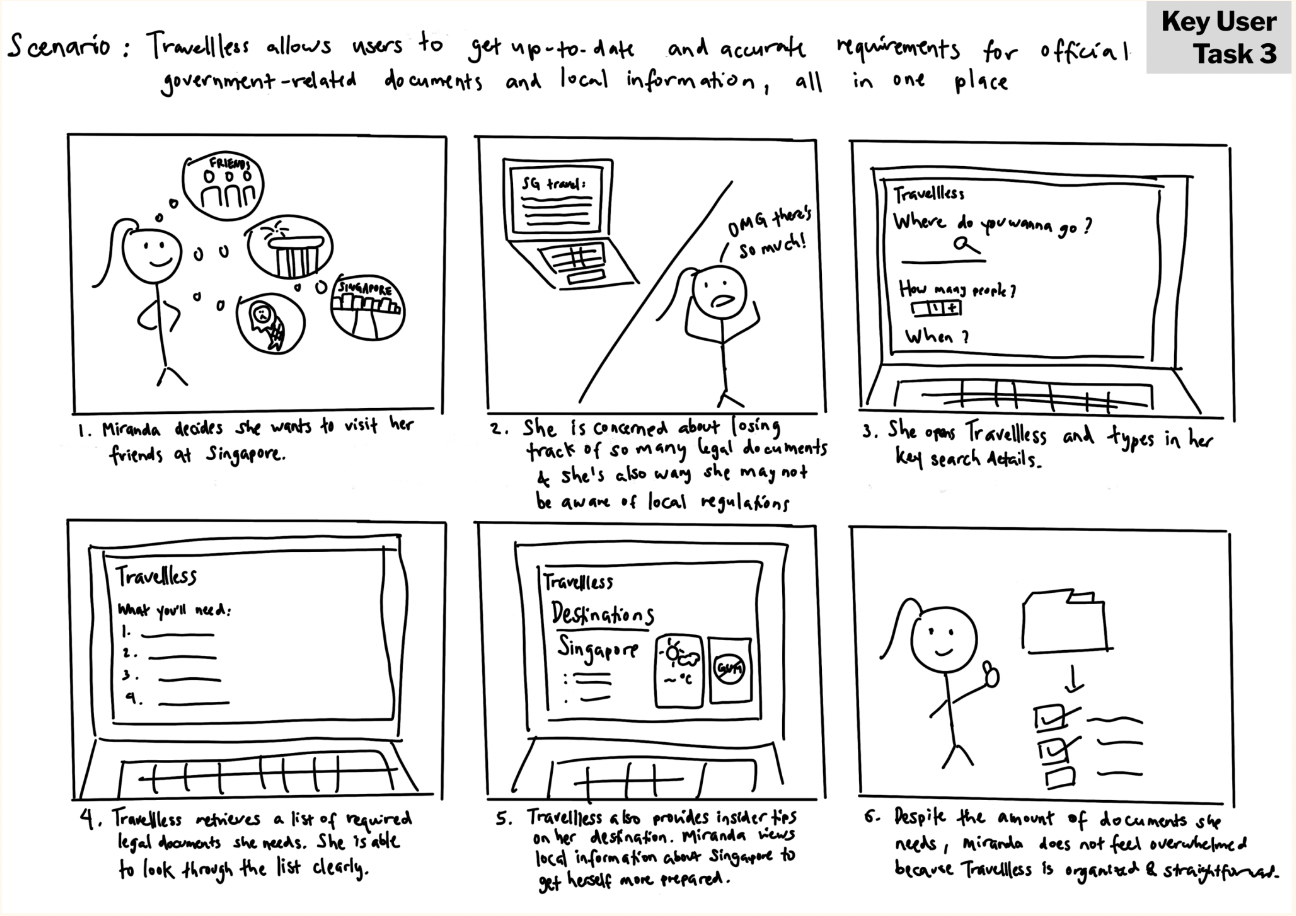 Key User
Task 3
Scenario: Travellless allows users to get up-to-date and accurate requirements for official
government-related documents and local information, all in one place
FRIENDS
SINGAPORE
1. Miranda decides she wants to visit her
friends at Singapore.
SG travel:
OMG there's
so much!
2. She is concerned about losing
track of so many legal documents
& she's also wary she may not
be aware of local regulations
Travellless
Where do you wanna go?
How many people?
1 +
When?
3. She opens Travellless and types in her
key search details.
Travellless
What you'll need:
1.
2.
3.
4.
4. Travellless retrieves a list of required
legal documents she needs. She is able
to look through the list clearly.
Travellless
Destinations
Singapore
~°C
GUM
5. Travellless also provides insider tips
on her destination. Miranda views
local information about Singapore to
get herself more prepared.
6. Despite the amount of documents she
needs, Miranda does not feel overwhelmed
because Travellless is organized & straightforward.